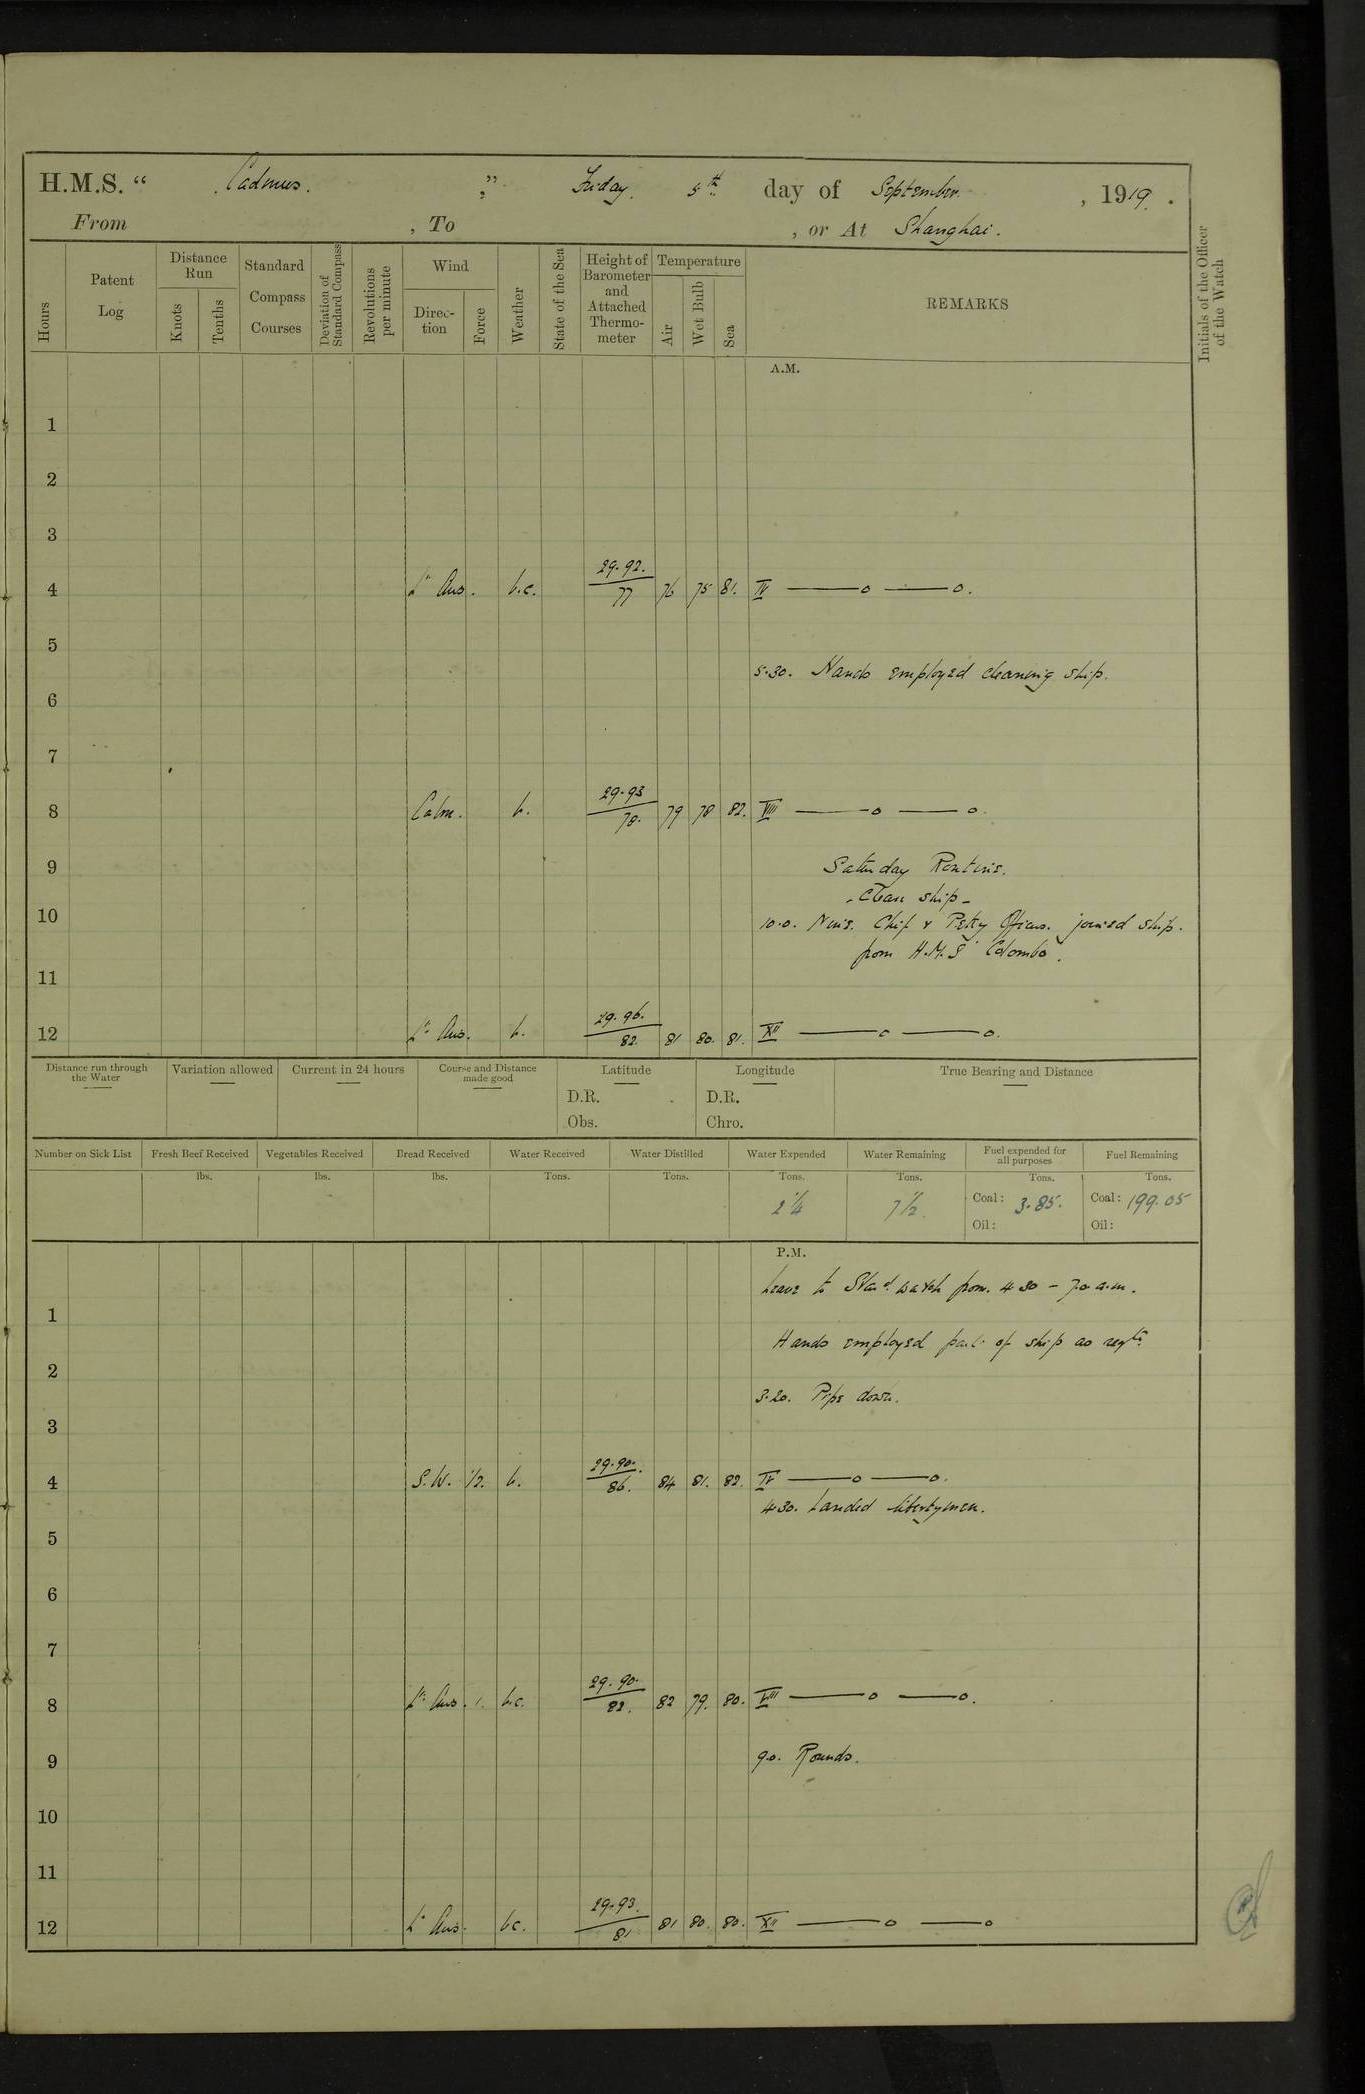 H.M.S. “ Cadmus. ,” Friday. 5th day of September. , 1919.
From , To , or At Shanghai.
Hours
Patent Log
Distance Run
Knots
Tenths
Standard Compass Courses
Deviation of Standard Compass
Revolutions per minute
Wind
Direction
Force
Weather
State of the Sea
Height of Barometer and Attached Thermometer
Temperature
Air
Wet Bulb
Sea
REMARKS
Initials of the Officer of the Watch
A.M.
1
2
3
4 Lt Airs. b.c. 29.92. 77 76 75 81. IV ——o ——o.
5
5.30. Hands employed cleaning ship.
6
7
8 Calm. b. 29.93 78. 79 78 82. VIII ——o ——o.
9 Saturday Routine.
- Clean ship -
10 10.0. Nine. Chief & Petty Officers. joined ship.
from H.M.S Colombo.
11
12 Lt Airs. b. 29.96. 82. 81 80. 81. XII ——o ——o.
Distance run through the Water
Variation allowed
Current in 24 hours
Course and Distance made good
Latitude
D.R.
Obs.
Longitude
D.R.
Chro.
True Bearing and Distance
Number on Sick List
Fresh Beef Received lbs.
Vegetables Received lbs.
Bread Received lbs.
Water Received Tons.
Water Distilled Tons.
Water Expended Tons. 2 1/4
Water Remaining Tons. 7 1/2.
Fuel expended for all purposes Tons.
Coal: 3.85.
Oil:
Fuel Remaining Tons.
Coal: 199.05
Oil:
P.M.
Leave to Starbd watch from. 4 30 - 7.0 a.m.
1
Hands employed part of ship as reqte
2
3.20. Pipe down.
3
4 S.W. 1/2. b. 29.90. 86. 84 81. 82. IV ——o ——o.
4.30. Landed libertymen.
5
6
7
8 Lt Airs. 1. b.c. 29.90. 82. 82 79. 80. VIII ——o ——o.
9 9.0. Rounds.
10
11
12 Lt Airs. bc. 29.93. 81 81 80. 80. XII ——o ——o